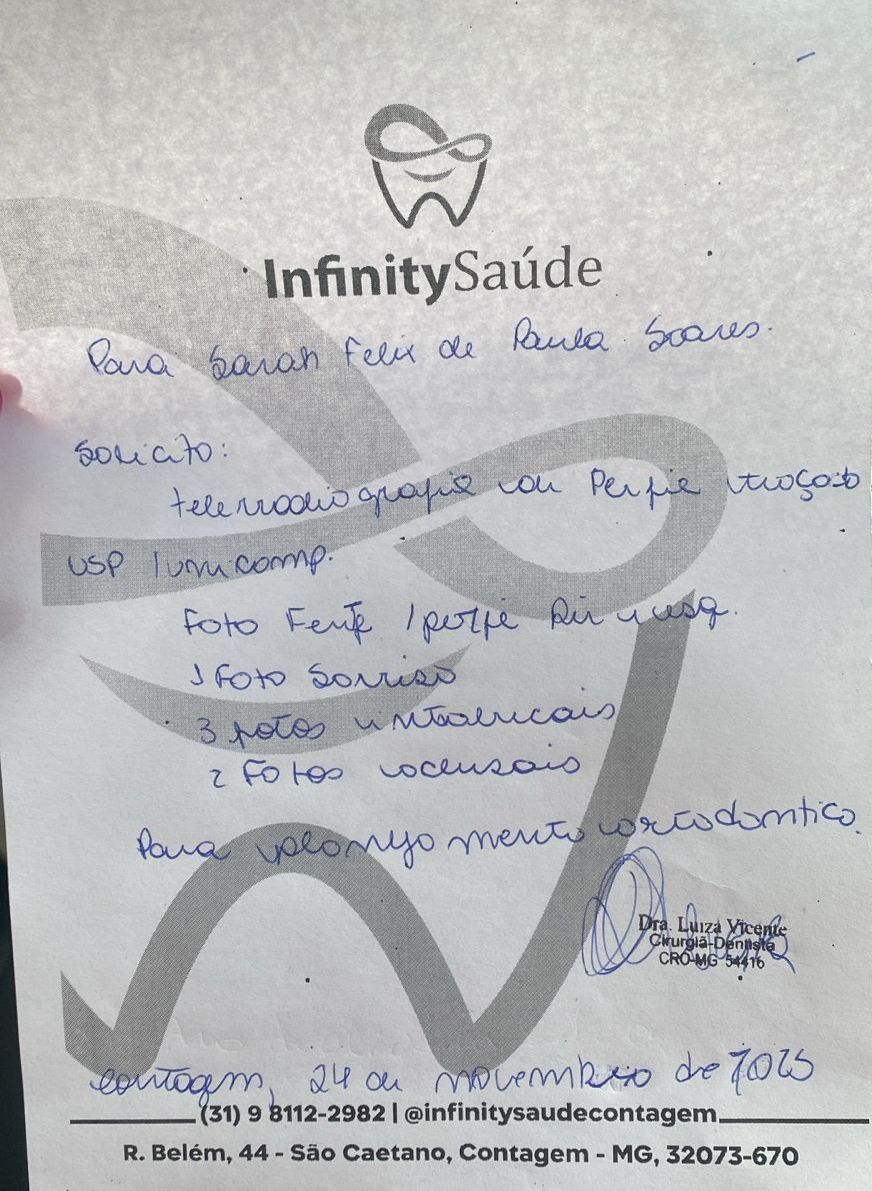 InfinitySaúde
Para Sarah Felix de Paula Soares.
Solicito:
telerradiografia de Perfil traçado
USP / unicamp.
Foto Frente / perfil Dir e esq.
1 Foto Sorriso
3 fotos intrabucais
2 Fotos oclusais
Para planejamento ortodontico.
Dra. Luiza Vicente
Cirurgiã-Dentista
CRO-MG 54416
Contagem, 24 de novembro de 2025
(31) 9 8112-2982 | @infinitysaudecontagem
R. Belém, 44 - São Caetano, Contagem - MG, 32073-670